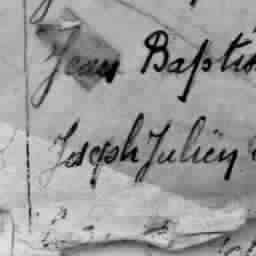 Jean Baptis
Joseph Juliën